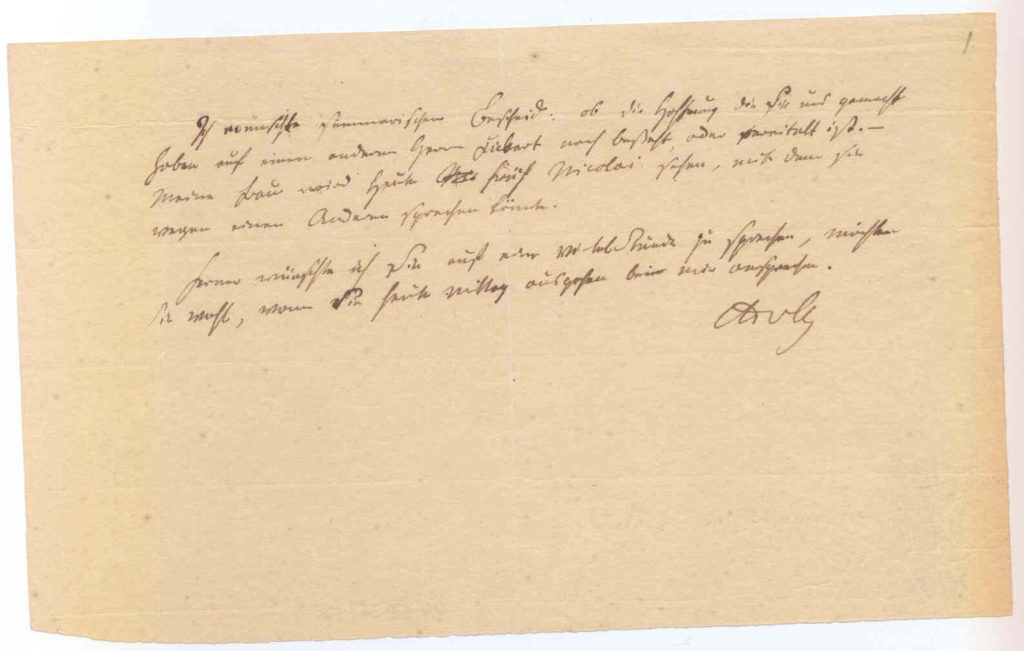 Ich wünschte summarischen Bescheid: ob die Hoffnung die Sie uns gemacht
haben auf einen anderen Herrn Lückert noch besteht, oder vereitelt ist. —
Meine Frau wird heute früh Nicolai sehen, mit dem sie
wegen eines Anderen sprechen könnte.
Ferner wünschte ich Sie auf eine Viertelstunde zu sprechen, möchten
Sie wohl, wenn Sie heute Mittag ausgehen bei mir ansprechen.